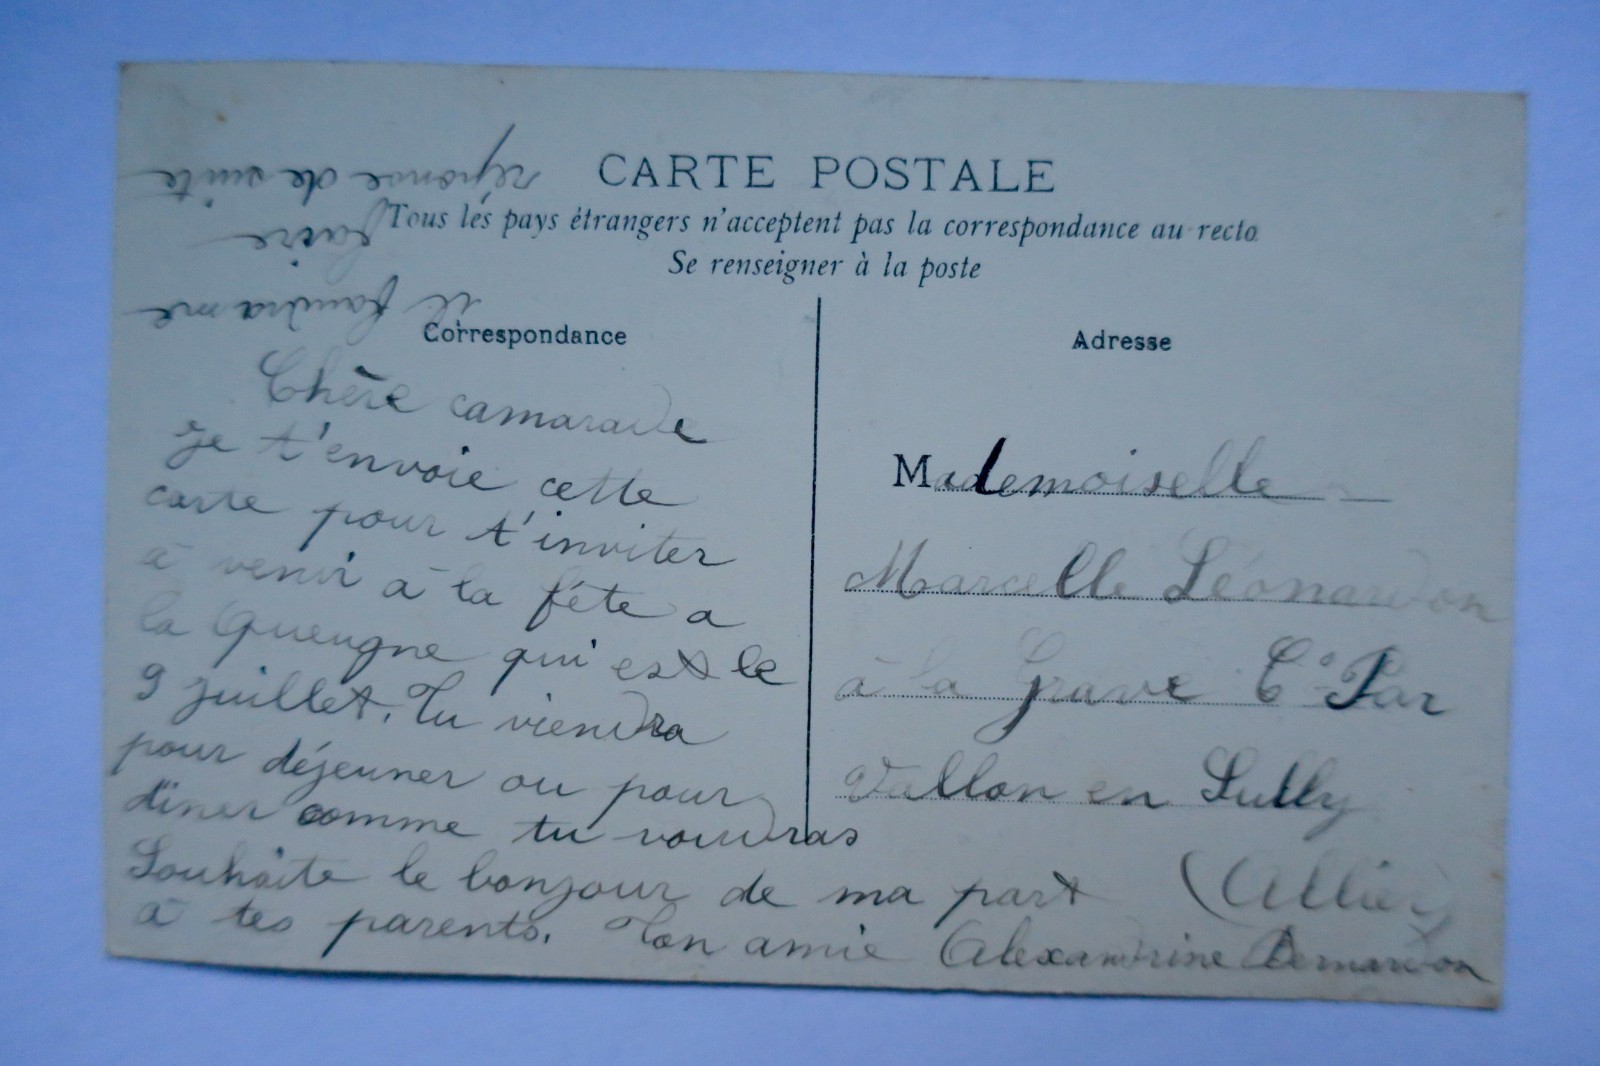 CARTE POSTALE
Tous les pays étrangers n'acceptent pas la correspondance au recto
Se renseigner à la poste
Correspondance
Chère camarade
Je t'envoie cette
carte pour t'inviter
à venir à la fête a
la Queugne qui est le
9 juillet. Tu viendra
pour déjeuner ou pour
diner comme tu voudras
Souhaite le bonjour de ma part
à tes parents. Ton amie Alexandrine Bernardon
il faudra me
faire
réponse de suite
Adresse
Mademoiselle
Marcelle Léonardon
à la Grave Cne Par
Vallon en Sully
(Allier)